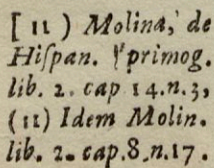 [ 11 ) Molina, de
Hiſpan. primog.
lib. 2. cap 14.n.3,
(11) Idem Molin.
lib. 2. cap.8.n.17.